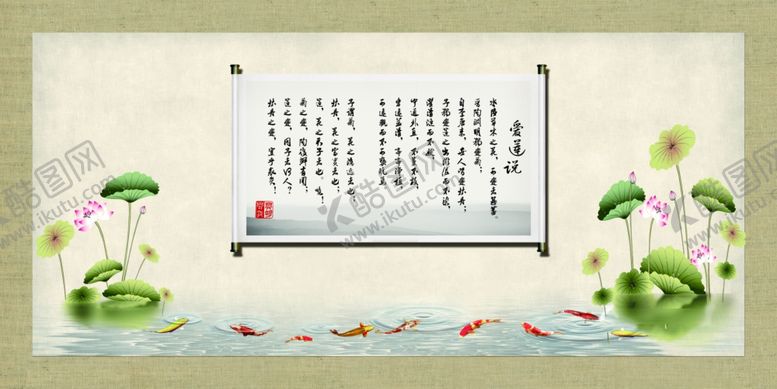 愛莲说
水陆草木之美，可爱者甚蕃。
晋陶渊明独爱菊；
自李唐来，世人皆爱牡丹；
予独爱莲之出淤泥而不染，
濯清涟而不妖，
中通外直，不蔓不枝，
香远益清，亭亭净植，
可远观而不可亵玩焉。
予谓菊，花之隐逸者也；
牡丹，花之富贵者也；
莲，花之君子者也。噫！
菊之爱，陶后鲜有闻；
莲之爱，同予者何人？
牡丹之爱，宜乎众矣。
酷图网
www.ikutu.com
酷图网
www.ikutu.com
酷图网
www.ikutu.com